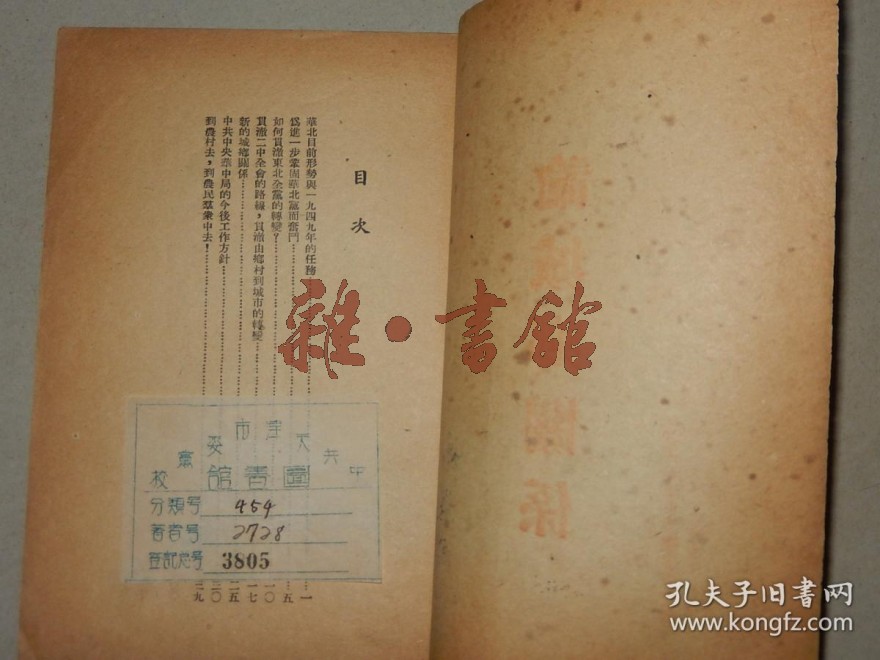 目次
華北目前形勢與一九四九年的任務……一
爲進一步鞏固華北黨而奮鬥……五
如何貫澈東北全黨的轉變？……一〇
貫澈二中全會的路綫，貫澈由鄉村到城市的轉變……一七
新的城鄉關係……二五
中共中央華中局的今後工作方針……三〇
到農村去，到農民羣衆中去！……三九
中共天津市委黨校
圖書館
分類号 454
著者号 2728
登記总号 3805
雜·書館
關係
孔夫子旧書网
www.kongfz.com